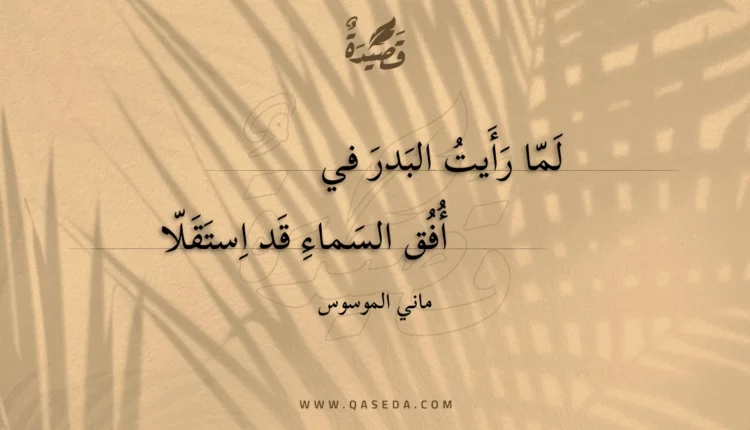 قَصِيدَةٌ
لَمّا رَأَيتُ البَدرَ في
أُفُقِ السَماءِ قَد اِستَقَلّا
ماني الموسوس
WWW.QASEDA.COM